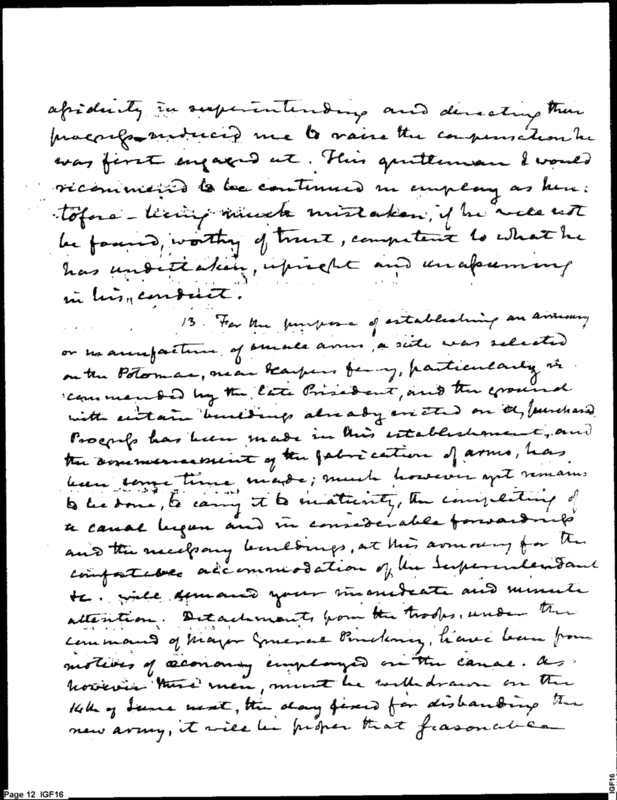 assiduity in superintending and directing their
progress induced me to raise the compensation he
was first engaged at. This gentleman I would
recommend to be continued in employ as here:
tofore – being much mistaken, if he will not
be found, worthy of trust, competent to what he
has undertaken, upright and unassuming
in his conduct.
13. For the purpose of establishing an armoury
or manufacture of small arms, a site was selected
on the Potomac, near Harpers ferry, particularly re
commended by the late President, and the ground
with certain buildings already erected on it, purchased.
Progress has been made in this establishment, and
the commencement of the fabrication of arms, has
been some time made; much however yet remains
to be done, to carry it to maturity, the completing of
a canal begun and in considerable forwardness
and the necessary buildings, at this armoury for the
comfortable accommodation of the Superintendant
&c. will demand your immediate and minute
attention. Detachments from the troops, under the
command of Major General Pinckney, have been from
motives of œconomy employed on the canal. As
however these men, must be withdrawn on the
14th of June next, the day fixed for disbanding the
new army, it will be proper that seasonable
Page 12 IGF16
IGF16